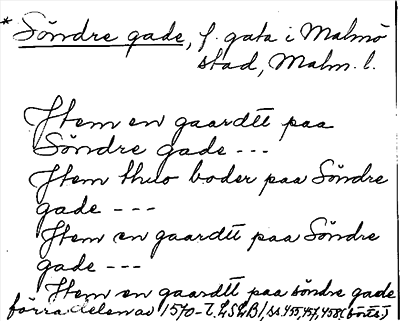 * Söndre gade, f. gata i Malmö
stad, Malm. l.
Jtem en gaardtt paa
Söndre gade ---
Jtem thuo boder paa Söndre
gade ---
Jtem en gaardtt paa Söndre
gade ---
Jtem en gaardtt paa söndre gade
förra delen av 1570-t.